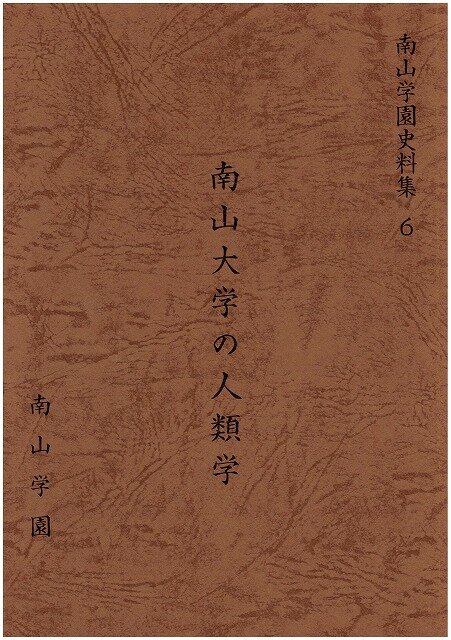 南山学園史料集 6
南山大学の人類学
南山学園